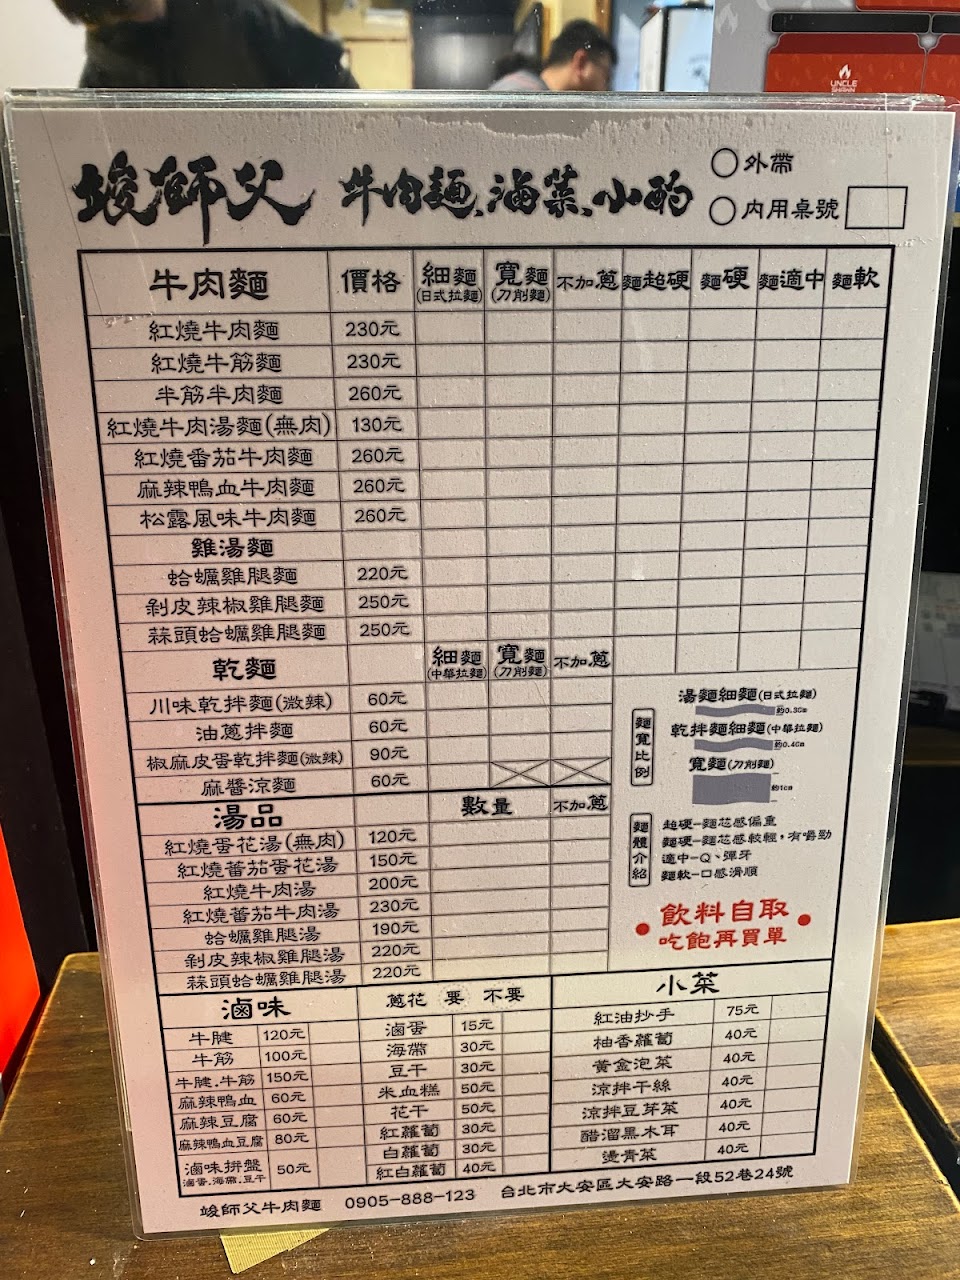 UNCLE
竣師父 牛肉麵、滷菜、小酌
外帶
內用桌號
牛肉麵 價格 細麵(日式拉麵) 寬麵(刀削麵) 不加蔥 麵超硬 麵硬 麵適中 麵軟
紅燒牛肉麵 230元
紅燒牛筋麵 230元
半筋半肉麵 260元
紅燒牛肉湯麵(無肉) 130元
紅燒番茄牛肉麵 260元
麻辣鴨血牛肉麵 260元
松露風味牛肉麵 260元
雞湯麵
蛤蠣雞腿麵 220元
剝皮辣椒雞腿麵 250元
蒜頭蛤蠣雞腿麵 250元
乾麵 細麵(中華拉麵) 寬麵(刀削麵) 不加蔥
川味乾拌麵(微辣) 60元
油蔥拌麵 60元
椒麻皮蛋乾拌麵(微辣) 90元
麻醬涼麵 60元
麵寬比例
湯麵細麵(日式拉麵)
約0.3cm
乾拌麵細麵(中華拉麵)
約0.4cm
寬麵(刀削麵)
約1cm
麵體介紹
超硬-麵芯感偏重
麵硬-麵芯感較輕,有嚼勁
適中-Q、彈牙
麵軟-口感滑順
飲料自取
吃飽再買單
湯品 數量 不加蔥
紅燒蛋花湯(無肉) 120元
紅燒蕃茄蛋花湯 150元
紅燒牛肉湯 200元
紅燒蕃茄牛肉湯 230元
蛤蠣雞腿湯 190元
剝皮辣椒雞腿湯 220元
蒜頭蛤蠣雞腿湯 220元
滷味 蔥花 要 不要
牛腱 120元
牛筋 100元
牛腱.牛筋 150元
麻辣鴨血 60元
麻辣豆腐 60元
麻辣鴨血豆腐 80元
滷味拼盤 50元
滷蛋.海帶.豆干
滷蛋 15元
海帶 30元
豆干 30元
米血糕 50元
花干 50元
紅蘿蔔 30元
白蘿蔔 30元
紅白蘿蔔 40元
小菜
紅油抄手 75元
柚香蘿蔔 40元
黃金泡菜 40元
涼拌干絲 40元
涼拌豆芽菜 40元
醋溜黑木耳 40元
燙青菜 40元
竣師父牛肉麵 0905-888-123 台北市大安區大安路一段52巷24號